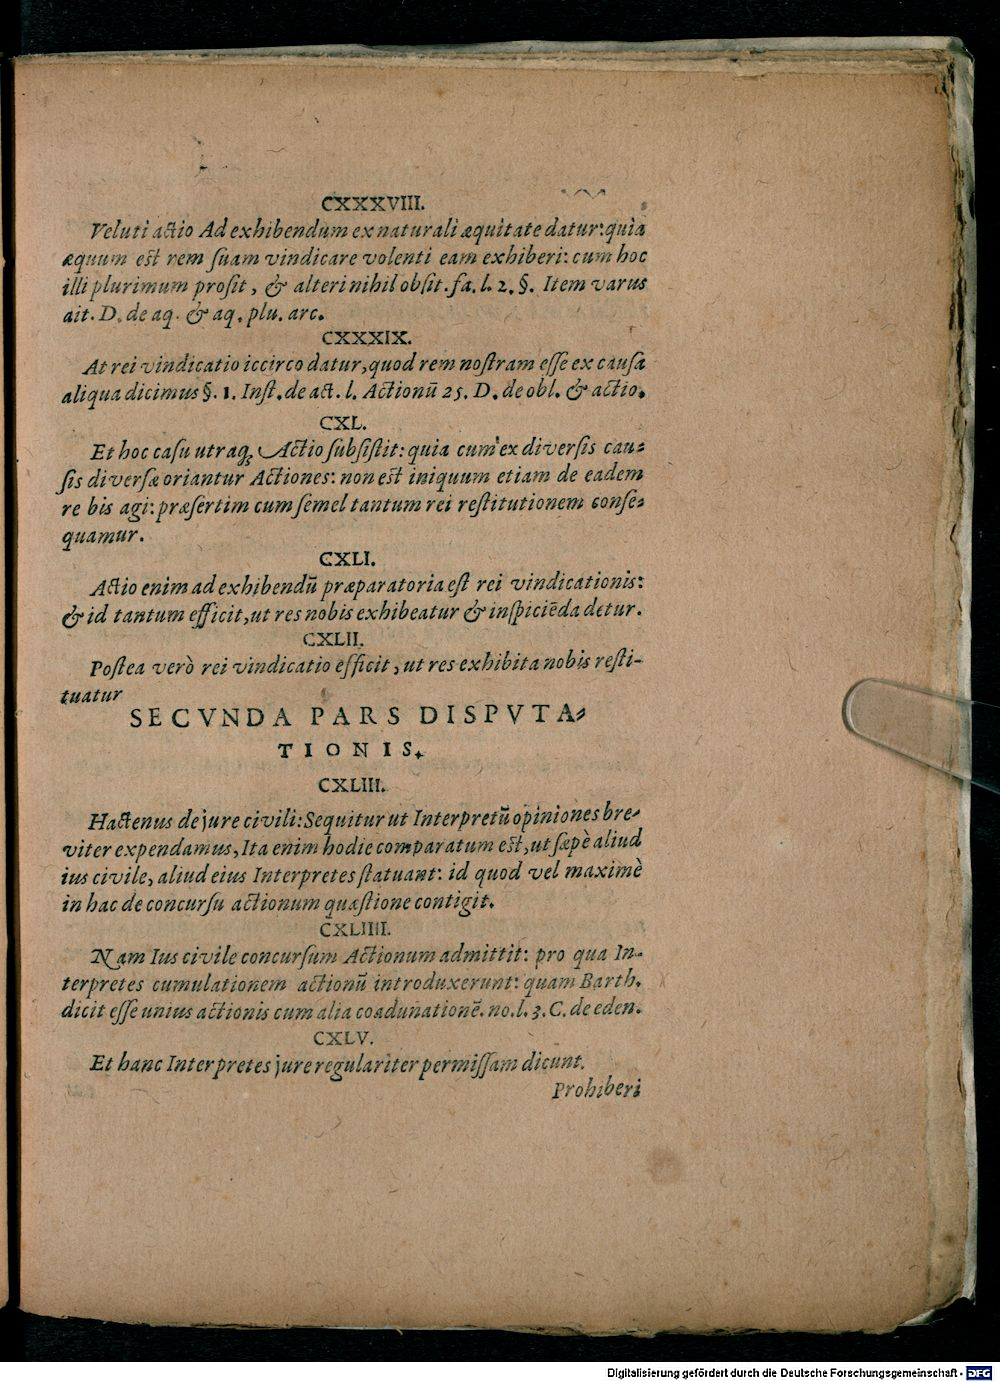 CXXXVIII.
Veluti actio Ad exhibendum ex naturali æquitate datur: quia
æquum est rem suam vindicare volenti eam exhiberi: cum hoc
illi plurimum prosit, & alteri nihil obsit. fa. l. 2. §. Item varus
ait. D. de aq. & aq. plu. arc.
CXXXIX.
At rei vindicatio iccirco datur, quod rem nostram esse ex causa
aliqua dicimus §. 1. Inst. de act. l. Actionū 25. D. de obl. & actio.
CXL.
Et hoc casu utraq; Actio subsistit: quia cum ex diversis cau-
sis diversæ oriantur Actiones: non est iniquum etiam de eadem
re bis agi: præsertim cum semel tantum rei restitutionem conse-
quamur.
CXLI.
Actio enim ad exhibendū præparatoria est rei vindicationis:
& id tantum efficit, ut res nobis exhibeatur & inspiciēda detur.
CXLII.
Postea verò rei vindicatio efficit, ut res exhibita nobis resti-
tuatur
SECVNDA PARS DISPVTA-
TIONIS.
CXLIII.
Hactenus de jure civili: Sequitur ut Interpretū opiniones bre-
viter expendamus, Ita enim hodie comparatum est, ut sæpè aliud
ius civile, aliud eius Interpretes statuant: id quod vel maximè
in hac de concursu actionum quæstione contigit.
CXLIIII.
Nam Ius civile concursum Actionum admittit: pro qua In-
terpretes cumulationem actionū introduxerunt: quam Barth.
dicit esse unius actionis cum alia coadunationē. no. l. 3. C. de eden.
CXLV.
Et hanc Interpretes jure regulariter permissam dicunt.
Prohiberi
Digitalisierung gefördert durch die Deutsche Forschungsgemeinschaft - DFG